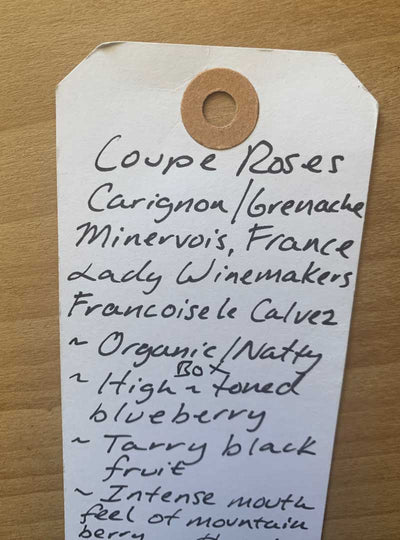 Coupe Roses
Carignon/Grenache
Minervois, France
Lady Winemakers
Francoise le Calvez
~ Organic/Natty
Box
~ High ~ toned
blueberry
~ Tarry black
fruit
~ Intense mouth
feel of mountain
berry